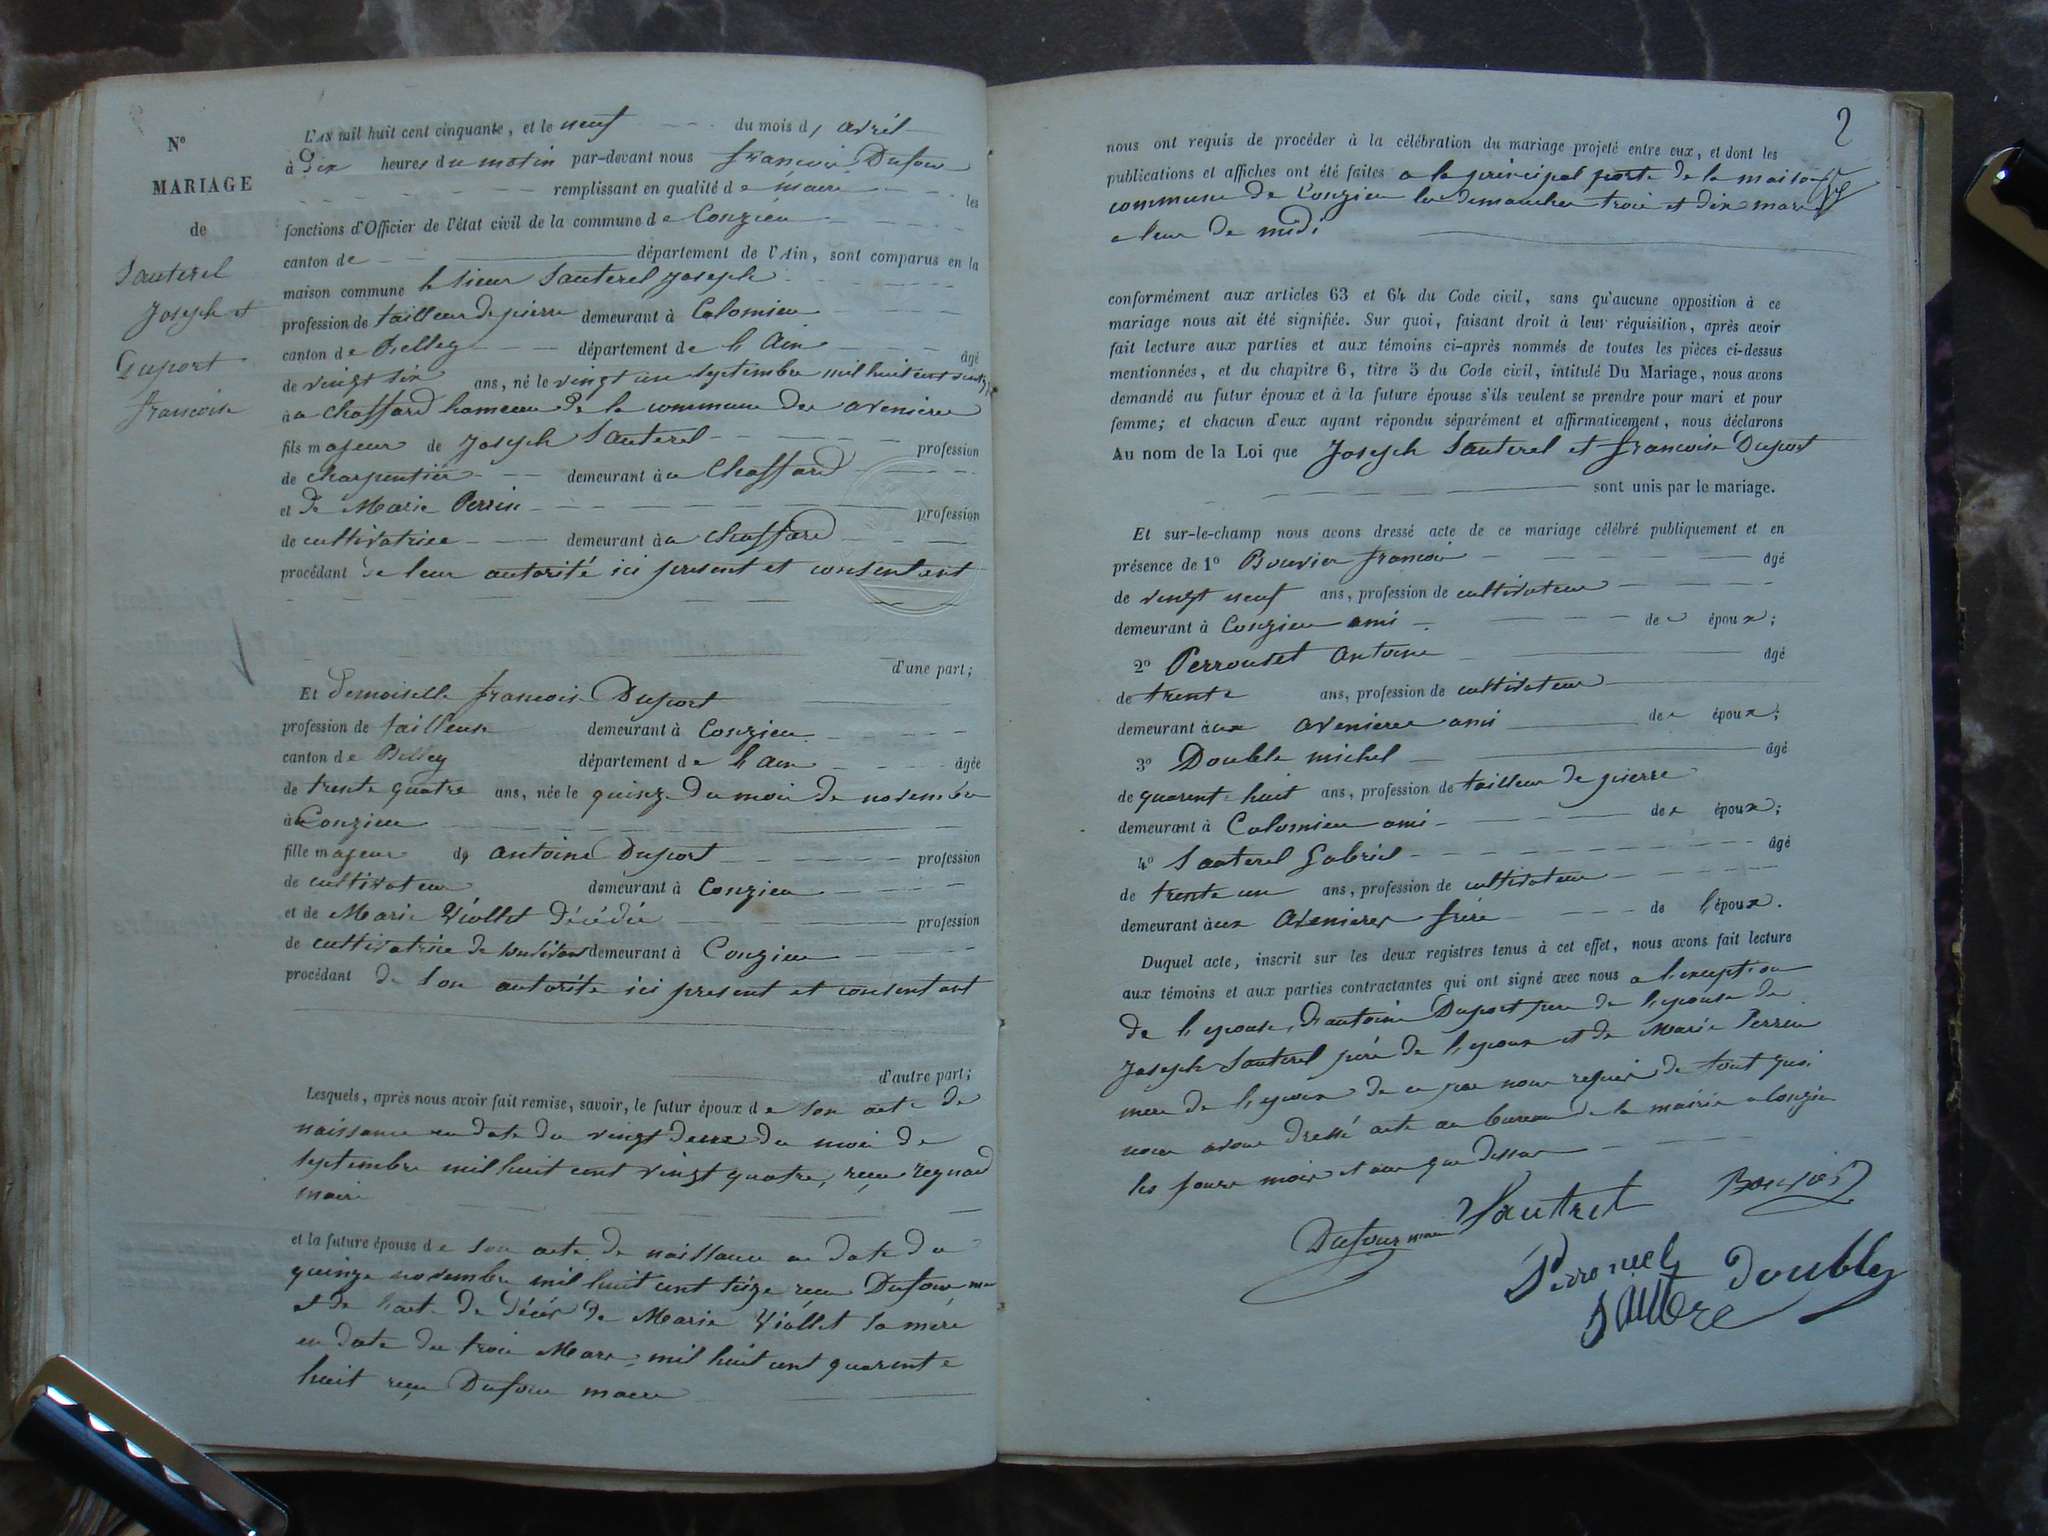 N°
MARIAGE
de
Sauterel
Joseph et
Duport
francoise
L'AN mil huit cent cinquante, et le neuf du mois d, avril
à dix heures du matin par-devant nous francois Dufour
remplissant en qualité de maire les
fonctions d'Officier de l'état civil de la commune de Conzieu
canton de département de l'Ain, sont comparus en la
maison commune le sieur Sauterel Joseph
profession de tailleur de pierre demeurant à Colomieu
canton de Belley département de l Ain âgé
de vingt six ans, né le vingt un septembre mil huit cent
àu Chaffard hameau de la commune des avenieres
fils majeur de Joseph Sauterel profession
de charpentier demeurant àu Chaffard
et de Marie Perrin profession
de cultivatrice demeurant àu Chaffard
procédant de leur autorité ici present et consentent
d'une part;
Et demoiselle francoise Duport
profession de tailleuse demeurant à Conzieu
canton de Belley département de l ain âgée
de trente quatre ans, née le quinze du mois de novembre
à Conzieu
fille majeur de antoine Duport profession
de cultivateur demeurant à Conzieu
et de Marie Viollet décédée profession
de cultivatrice de son vivant demeurant à Conzieu
procédant de son autorité ici present et consentant
d'autre part;
Lesquels, après nous avoir fait remise, savoir, le futur époux de son acte de
naissance en date du vingt deux du mois de
septembre mil huit cent vingt quatre, reçu regnard
maire
et la future épouse de son acte de naissance en date du
quinze novembre mil huit cent seize reçu Dufour
et de l'acte de décès de Marie Viollet sa mère
en date du trois Mars mil huit cent quarente
huit reçu Dufour maire
2
nous ont requis de procéder à la célébration du mariage projeté entre eux, et dont les
publications et affiches ont été faites a la principal porte de la maison
commune de Conzieu les dimanches trois et dix mars
a leur de midi
conformément aux articles 63 et 64 du Code civil, sans qu'aucune opposition à ce
mariage nous ait été signifiée. Sur quoi, faisant droit à leur réquisition, après avoir
fait lecture aux parties et aux témoins ci-après nommés de toutes les pièces ci-dessus
mentionnées, et du chapitre 6, titre 5 du Code civil, intitulé Du Mariage, nous avons
demandé au futur époux et à la future épouse s'ils veulent se prendre pour mari et pour
femme; et chacun d'eux ayant répondu séparément et affirmativement, nous déclarons
Au nom de la Loi que Joseph Sauterel et francoise Duport
sont unis par le mariage.
Et sur-le-champ nous avons dressé acte de ce mariage célébré publiquement et en
présence de 1° Bouvier francois âgé
de vingt neuf ans, profession de cultivateur
demeurant à Conzieu ami de époux;
2° Perrouset antoine âgé
de trente ans, profession de cultivateur
demeurant àux avenieres ami de époux;
3° Double michel âgé
de quarent-huit ans, profession de tailleur de pierre
demeurant à Colomieu ami de époux;
4° Sauterel Gabriel âgé
de trente un ans, profession de cultivateur
demeurant àux Avenieres frère de l'époux.
Duquel acte, inscrit sur les deux registres tenus à cet effet, nous avons fait lecture
aux témoins et aux parties contractantes qui ont signé avec nous a l'exception
de l epouse, d'antoine Duport pere de l epouse de
Joseph Sauterel père de l epoux et de Marie Perrin
mere de l epoux de ce par nous requis de tout quoi
nous avons dressé acte au bureau de la mairie a Conzieu
les jours mois et an que dessus
Dufour maire Sautrel Bouvier
Perrouset Doubley
Sautre